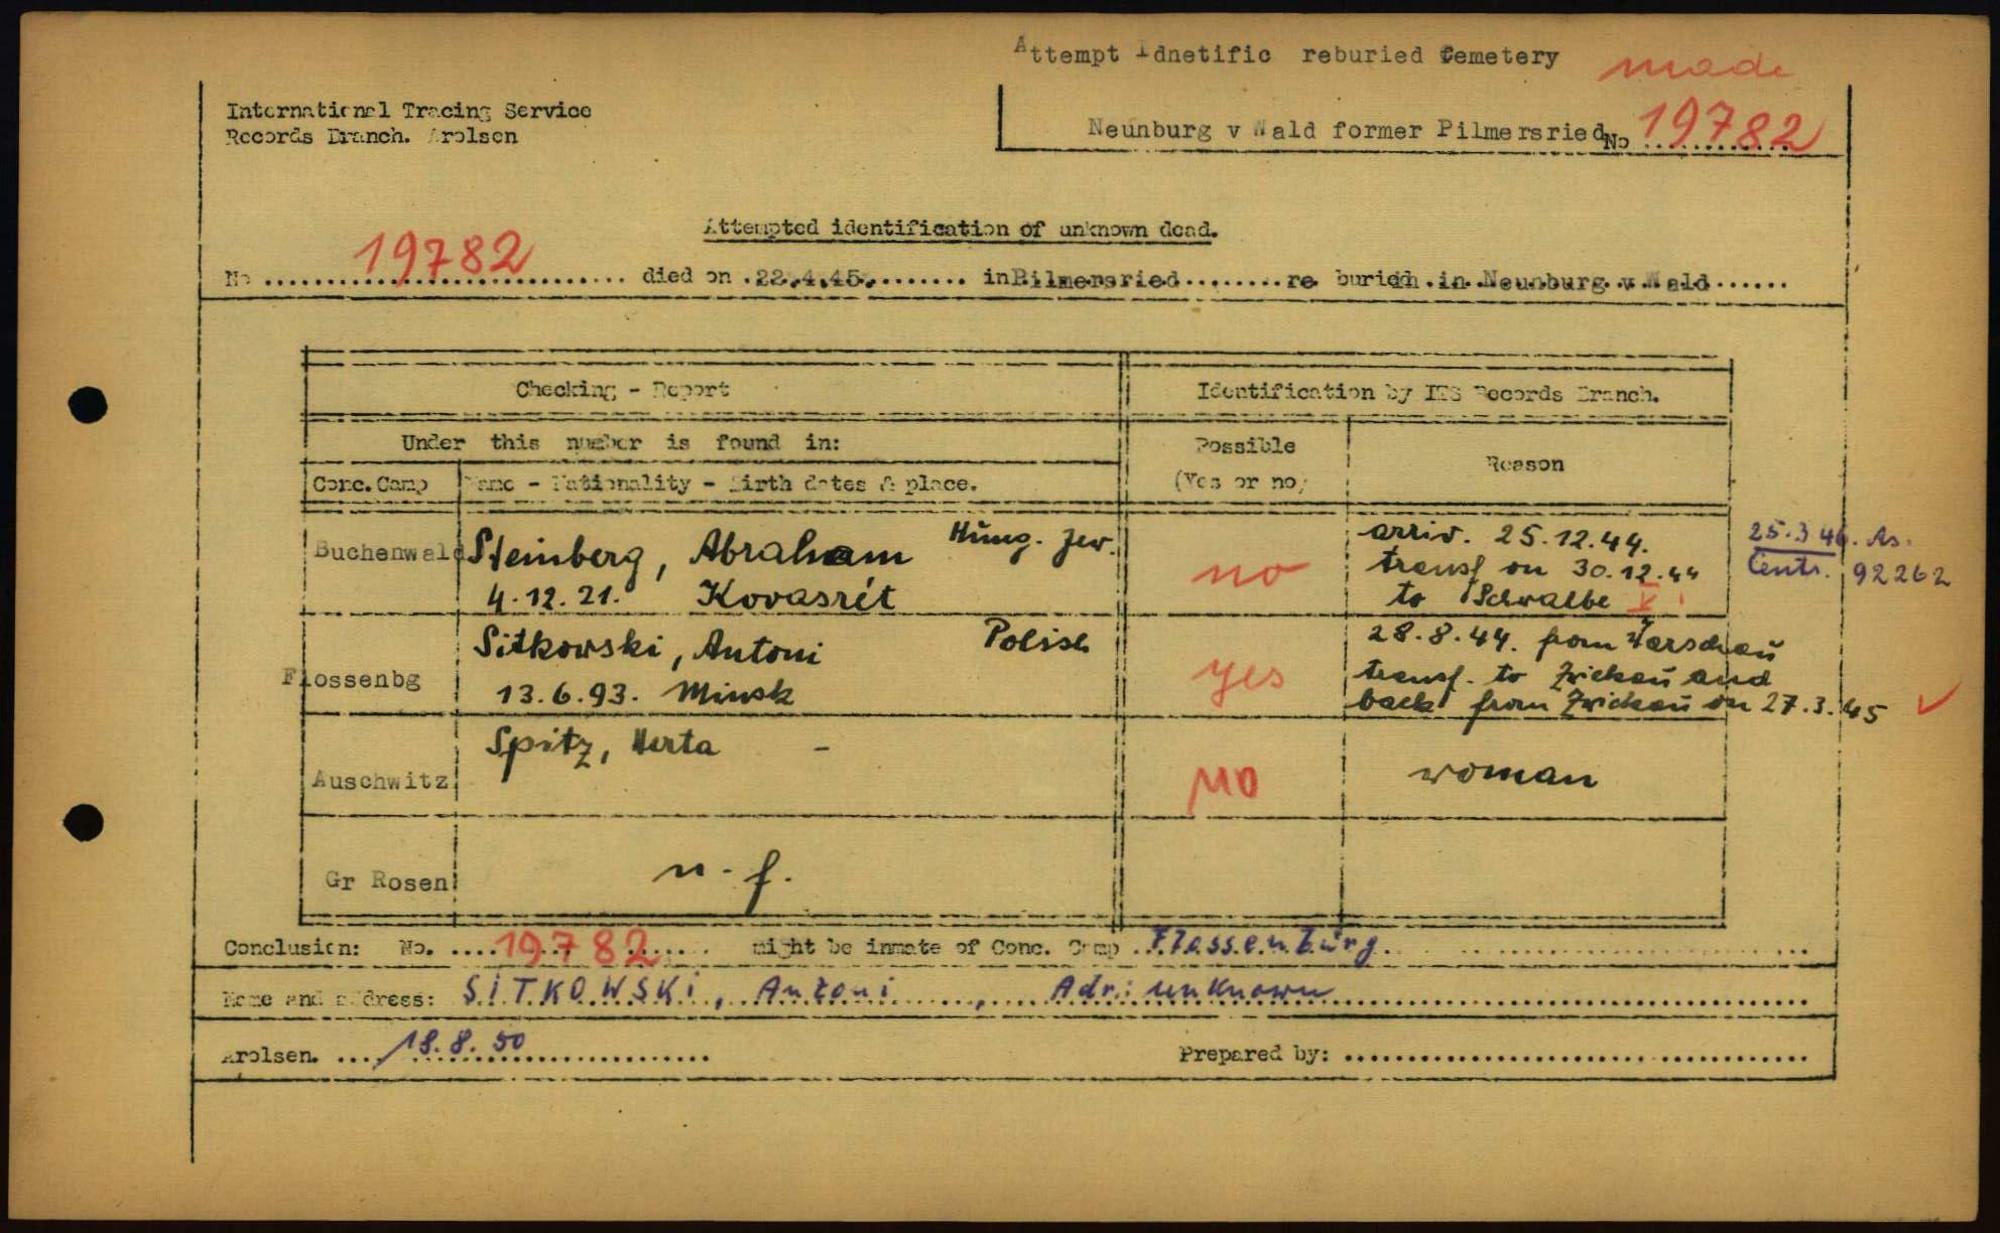 Attempt Idnetific reburied Cemetery made
International Tracing Service
Records Branch. Arolsen
Neunburg v Wald former Pilmersried No 19782
Attempted identification of unknown dead.
No 19782 died on 22.4.45. in Pilmersried re buried in Neunburg v Wald
Checking - Report
Identification by ITS Records Branch.
Under this number is found in:
Possible
(Yes or no)
Reason
Conc. Camp
Name - Nationality - Birth dates & place.
Buchenwald
Steinberg, Abraham Hung. Jew.
4.12.21. Kovasrét
no
arriv. 25.12.44.
transf on 30.12.44
to Schwalbe V
25.3.46. As.
Centr. 92262
Flossenbg
Sitkowski, Antoni Polish
13.6.93. Minsk
yes
28.8.44. from Warschau
transf. to Zwickau and
back from Zwickau on 27.3.45
Auschwitz
Spitz, Herta -
no
woman
Gr Rosen
n.f.
Conclusion: No. 19782 might be inmate of Conc. Camp Flossenbürg
Name and address: SITKOWSKI, Antoni, Adr: unknown
Arolsen. 18.8.50
Prepared by: